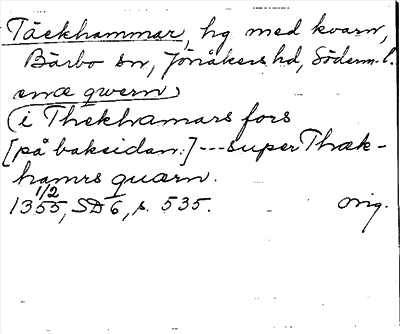 Täckhammar, hg med kvarn,
Bärbo sn, Jönåkers hd, Söderm. l.
ena qwern
(i Thekhamars fors
[på baksidan:] --- super Thæk-
hamrs quærn.
1/2
1355, SD 6, s. 535. orig.